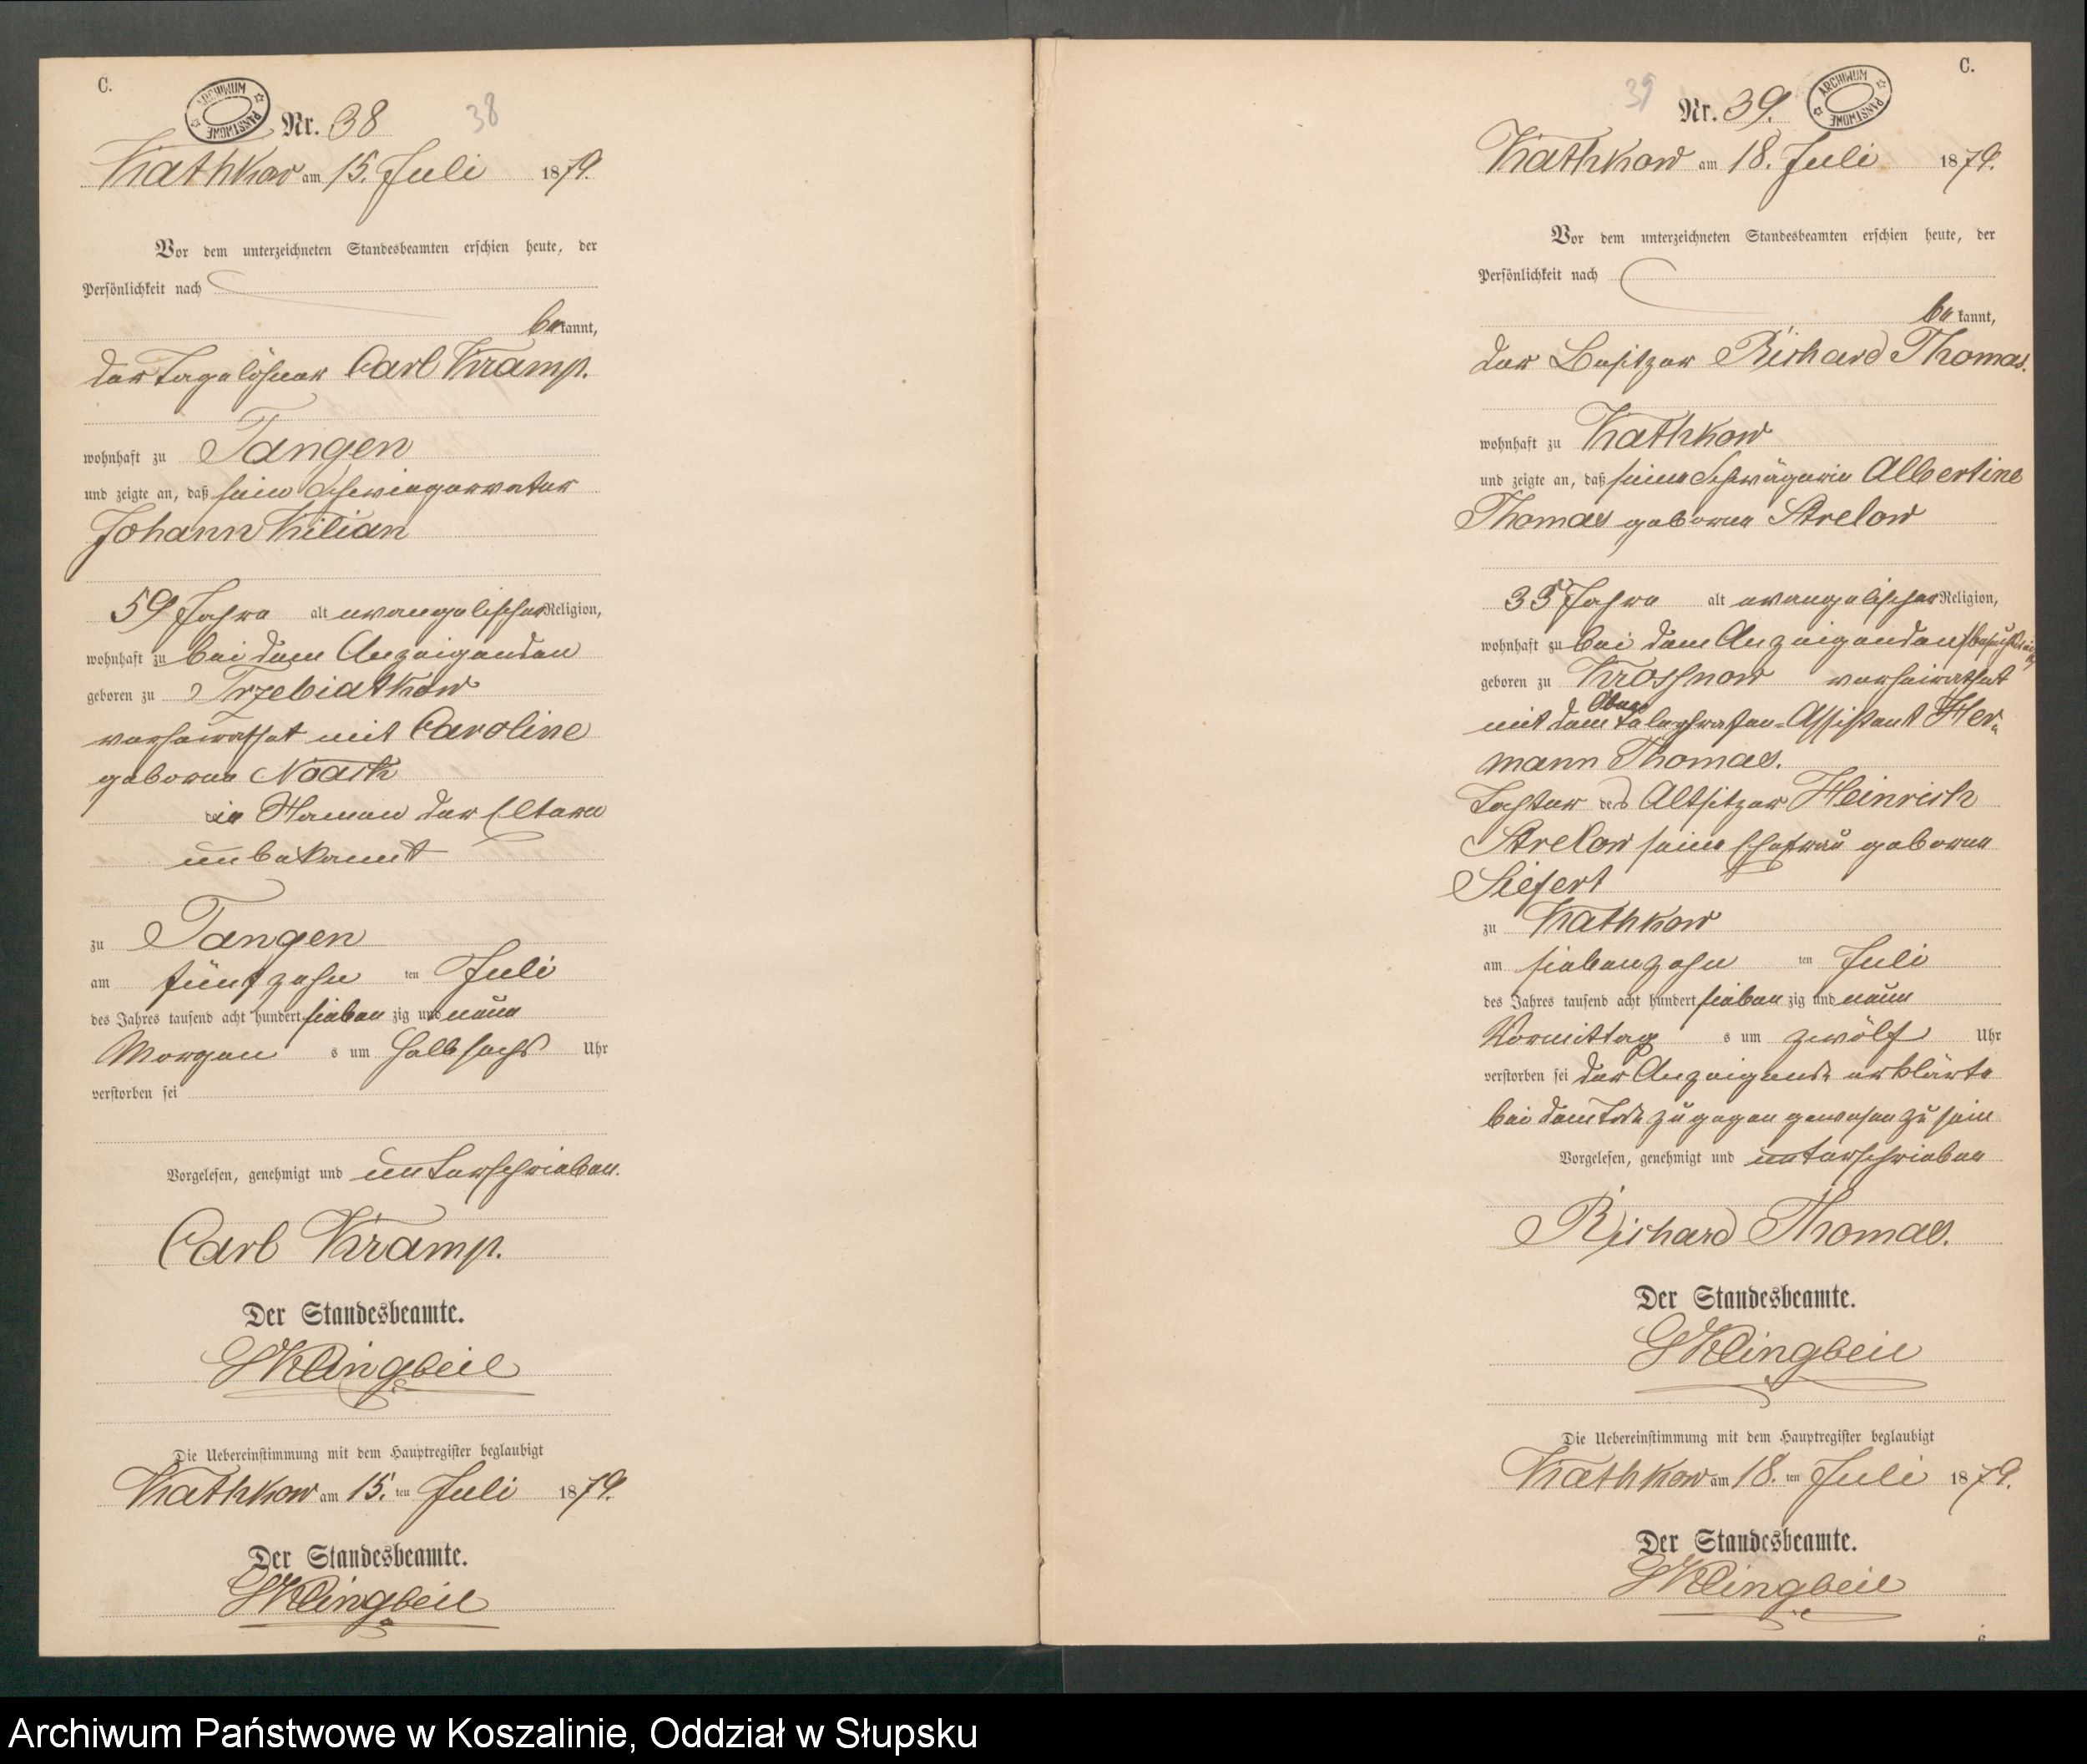 C.
ARCHIWUM PAŃSTWOWE
Nr. 38
38
Kathkow am 15. Juli 1879.
Vor dem unterzeichneten Standesbeamten erschien heute, der
Persönlichkeit nach
bekannt,
der Tagelöhner Carl Kramp.
wohnhaft zu Tangen
und zeigte an, daß sein Schwiegervater
Johann Kilian
59 Jahre alt evangelischer Religion,
wohnhaft zu bei dem Anzeigenden
geboren zu Trzebiatkow
verheirathet mit Caroline
geborne Noack
die Namen der Eltern
unbekannt
zu Tangen
am fünfzehn ten Juli
des Jahres tausend acht hundert sieben zig und neun
Morgen s um halb sechs Uhr
verstorben sei
Vorgelesen, genehmigt und unterschrieben.
Carl Kramp.
Der Standesbeamte.
Klingbeil
Die Uebereinstimmung mit dem Hauptregister beglaubigt
Kathkow am 15. ten Juli 1879.
Der Standesbeamte.
Klingbeil
C.
39
Nr. 39.
ARCHIWUM PAŃSTWOWE
Kathkow am 18. Juli 1879.
Vor dem unterzeichneten Standesbeamten erschien heute, der
Persönlichkeit nach
bekannt,
der Besitzer Richard Thomas.
wohnhaft zu Kathkow
und zeigte an, daß seine Schwägerin Albertine
Thomas geborne Strelow
35 Jahre alt evangelischer Religion,
wohnhaft zu bei dem Anzeigenden
geboren zu Krossnow verheirathet
mit dem Ober Telegraphen-Assistent Her-
mann Thomas.
Tochter des Altsitzer Heinrich
Strelow seine Ehefrau geborne
Siefert
zu Kathkow
am siebenzehn ten Juli
des Jahres tausend acht hundert sieben zig und neun
Vormittag s um zwölf Uhr
verstorben sei der Anzeigende erklärte
bei dem Tode zugegen gewesen zu sein
Vorgelesen, genehmigt und unterschrieben
Richard Thomas.
Der Standesbeamte.
Klingbeil
Die Uebereinstimmung mit dem Hauptregister beglaubigt
Kathkow am 18. ten Juli 1879.
Der Standesbeamte.
Klingbeil
Archiwum Państwowe w Koszalinie, Oddział w Słupsku